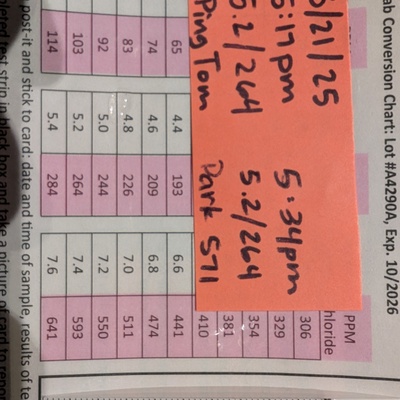 ab Conversion Chart: Lot #A4290A, Exp. 10/2026
PPM
hloride
/21/25
306
:17pm 5:34pm
329
5.2/264 5.2/264
354
381
Ping Tom Park S71
410
65 4.4 193 6.6 441
74 4.6 209 6.8 474
83 4.8 226 7.0 511
92 5.0 244 7.2 550
103 5.2 264 7.4 593
114 5.4 284 7.6 641
post-it and stick to card: date and time of sample, results of te
test strip in black box and take a picture of card to